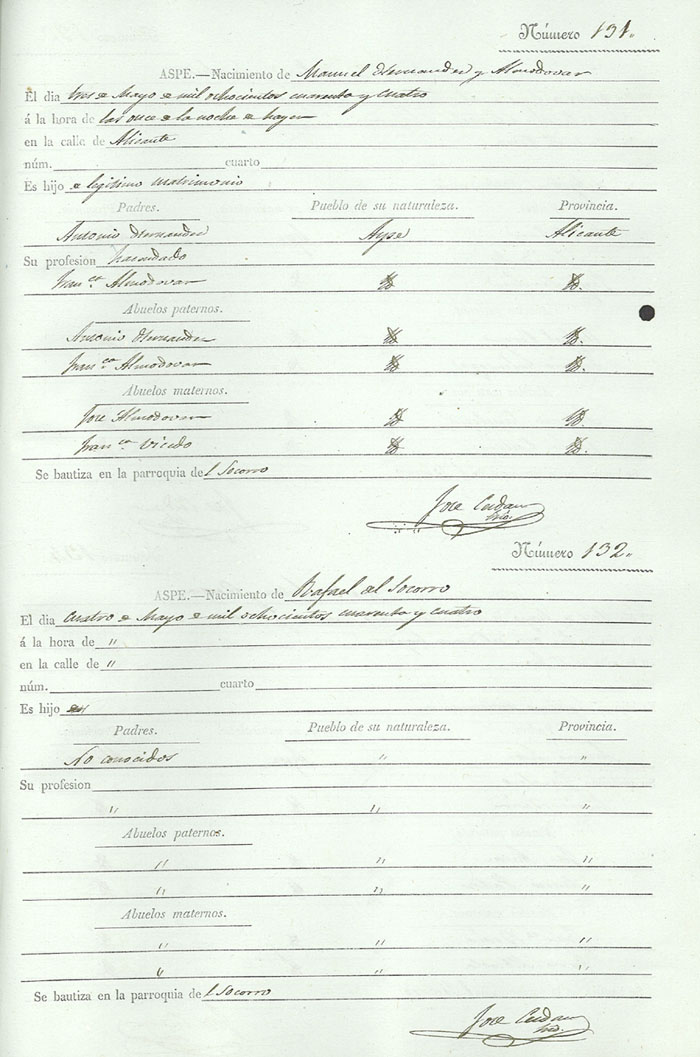 Número 131.
ASPE.—Nacimiento de Manuel Hernandez y Almodovar
El dia tres de Mayo de mil ochocientos cuarenta y cuatro
á la hora de las once de la noche de hayer
en la calle de Alicante
núm. cuarto
Es hijo de legitimo matrimonio
Padres. Pueblo de su naturaleza. Provincia.
Antonio Hernandez Aspe Alicante
Su profesion hacendado
Fran.ca Almodovar
Abuelos paternos.
Antonio Hernandez
Fran.ca Almodovar
Abuelos maternos.
Jose Almodovar
Fran.ca Vicedo
Se bautiza en la parroquia del Socorro
Jose
Número 132.
ASPE.—Nacimiento de Rafael del Socorro
El dia cuatro de Mayo de mil ochocientos cuarenta y cuatro
á la hora de "
en la calle de "
núm. cuarto
Es hijo
Padres. Pueblo de su naturaleza. Provincia.
No conocidos " "
Su profesion
" " "
Abuelos paternos.
" " "
" " "
Abuelos maternos.
" " "
" " "
Se bautiza en la parroquia del Socorro
Jose